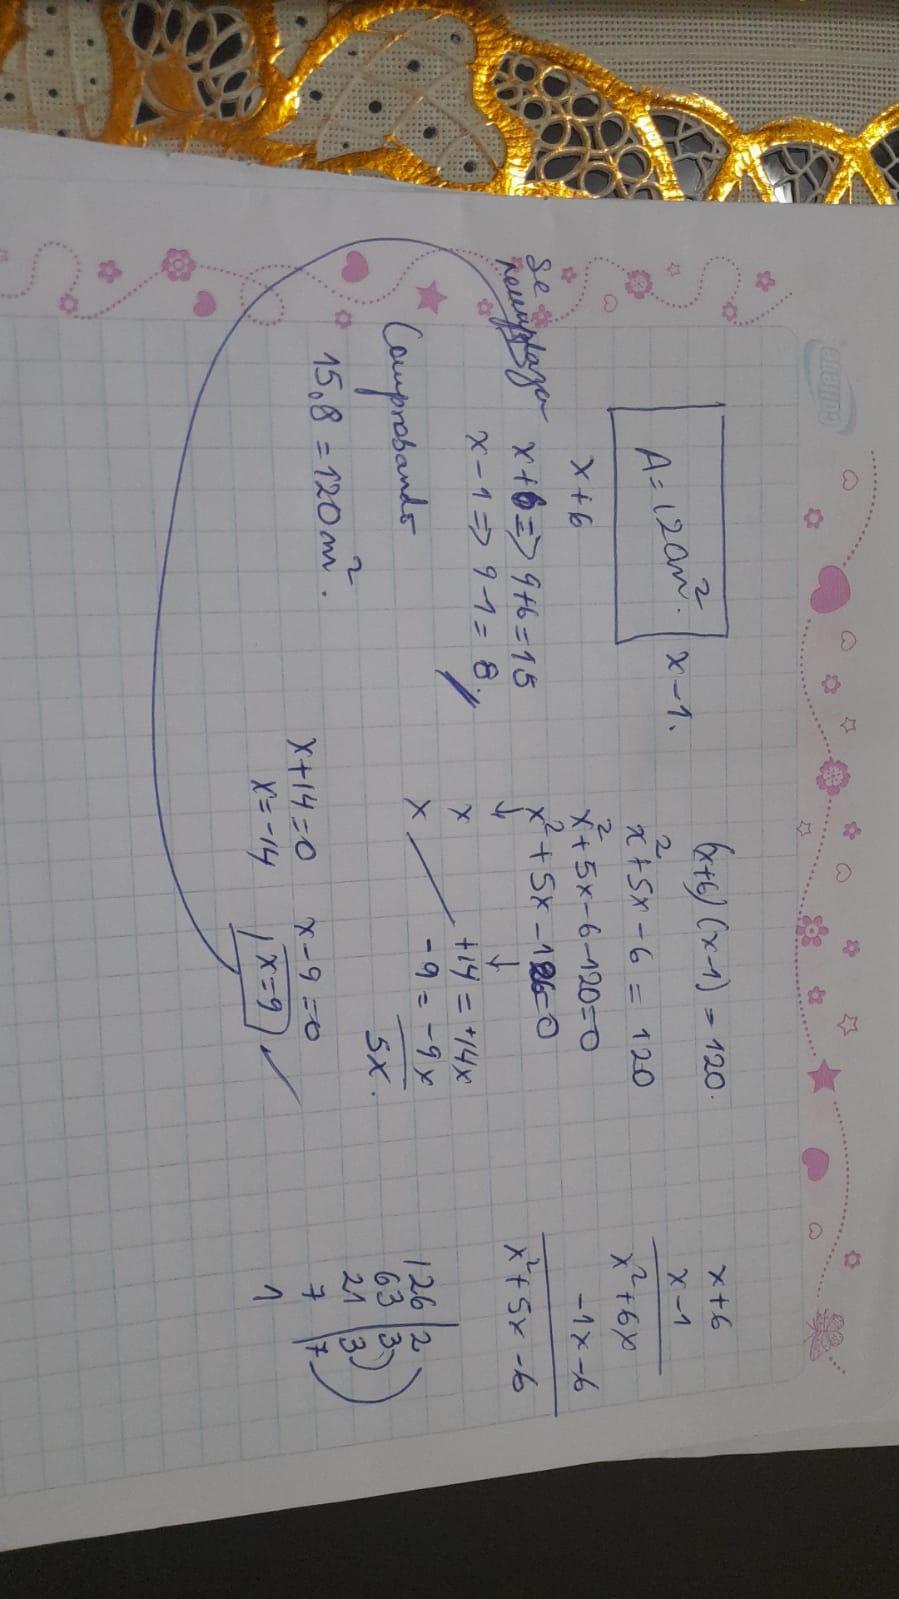 collane
A = 120m².
x-1.
x+6
Se
reemplaza
x+6 => 9+6=15
x-1 => 9-1=8.
Comprobando
15.8 = 120m².
(x+6)(x-1) = 120.
x²+5x-6 = 120
x²+5x-6-120=0
x²+5x-126=0
↓ ↓
x +14 = +14x
x -9 = -9x
5x.
x+14=0 x-9=0
x=-14 x=9 ✓
x+6
x-1
x²+6x
-1x-6
x²+5x-6
126 | 2
63 | 3
21 | 3
7 | 7
1